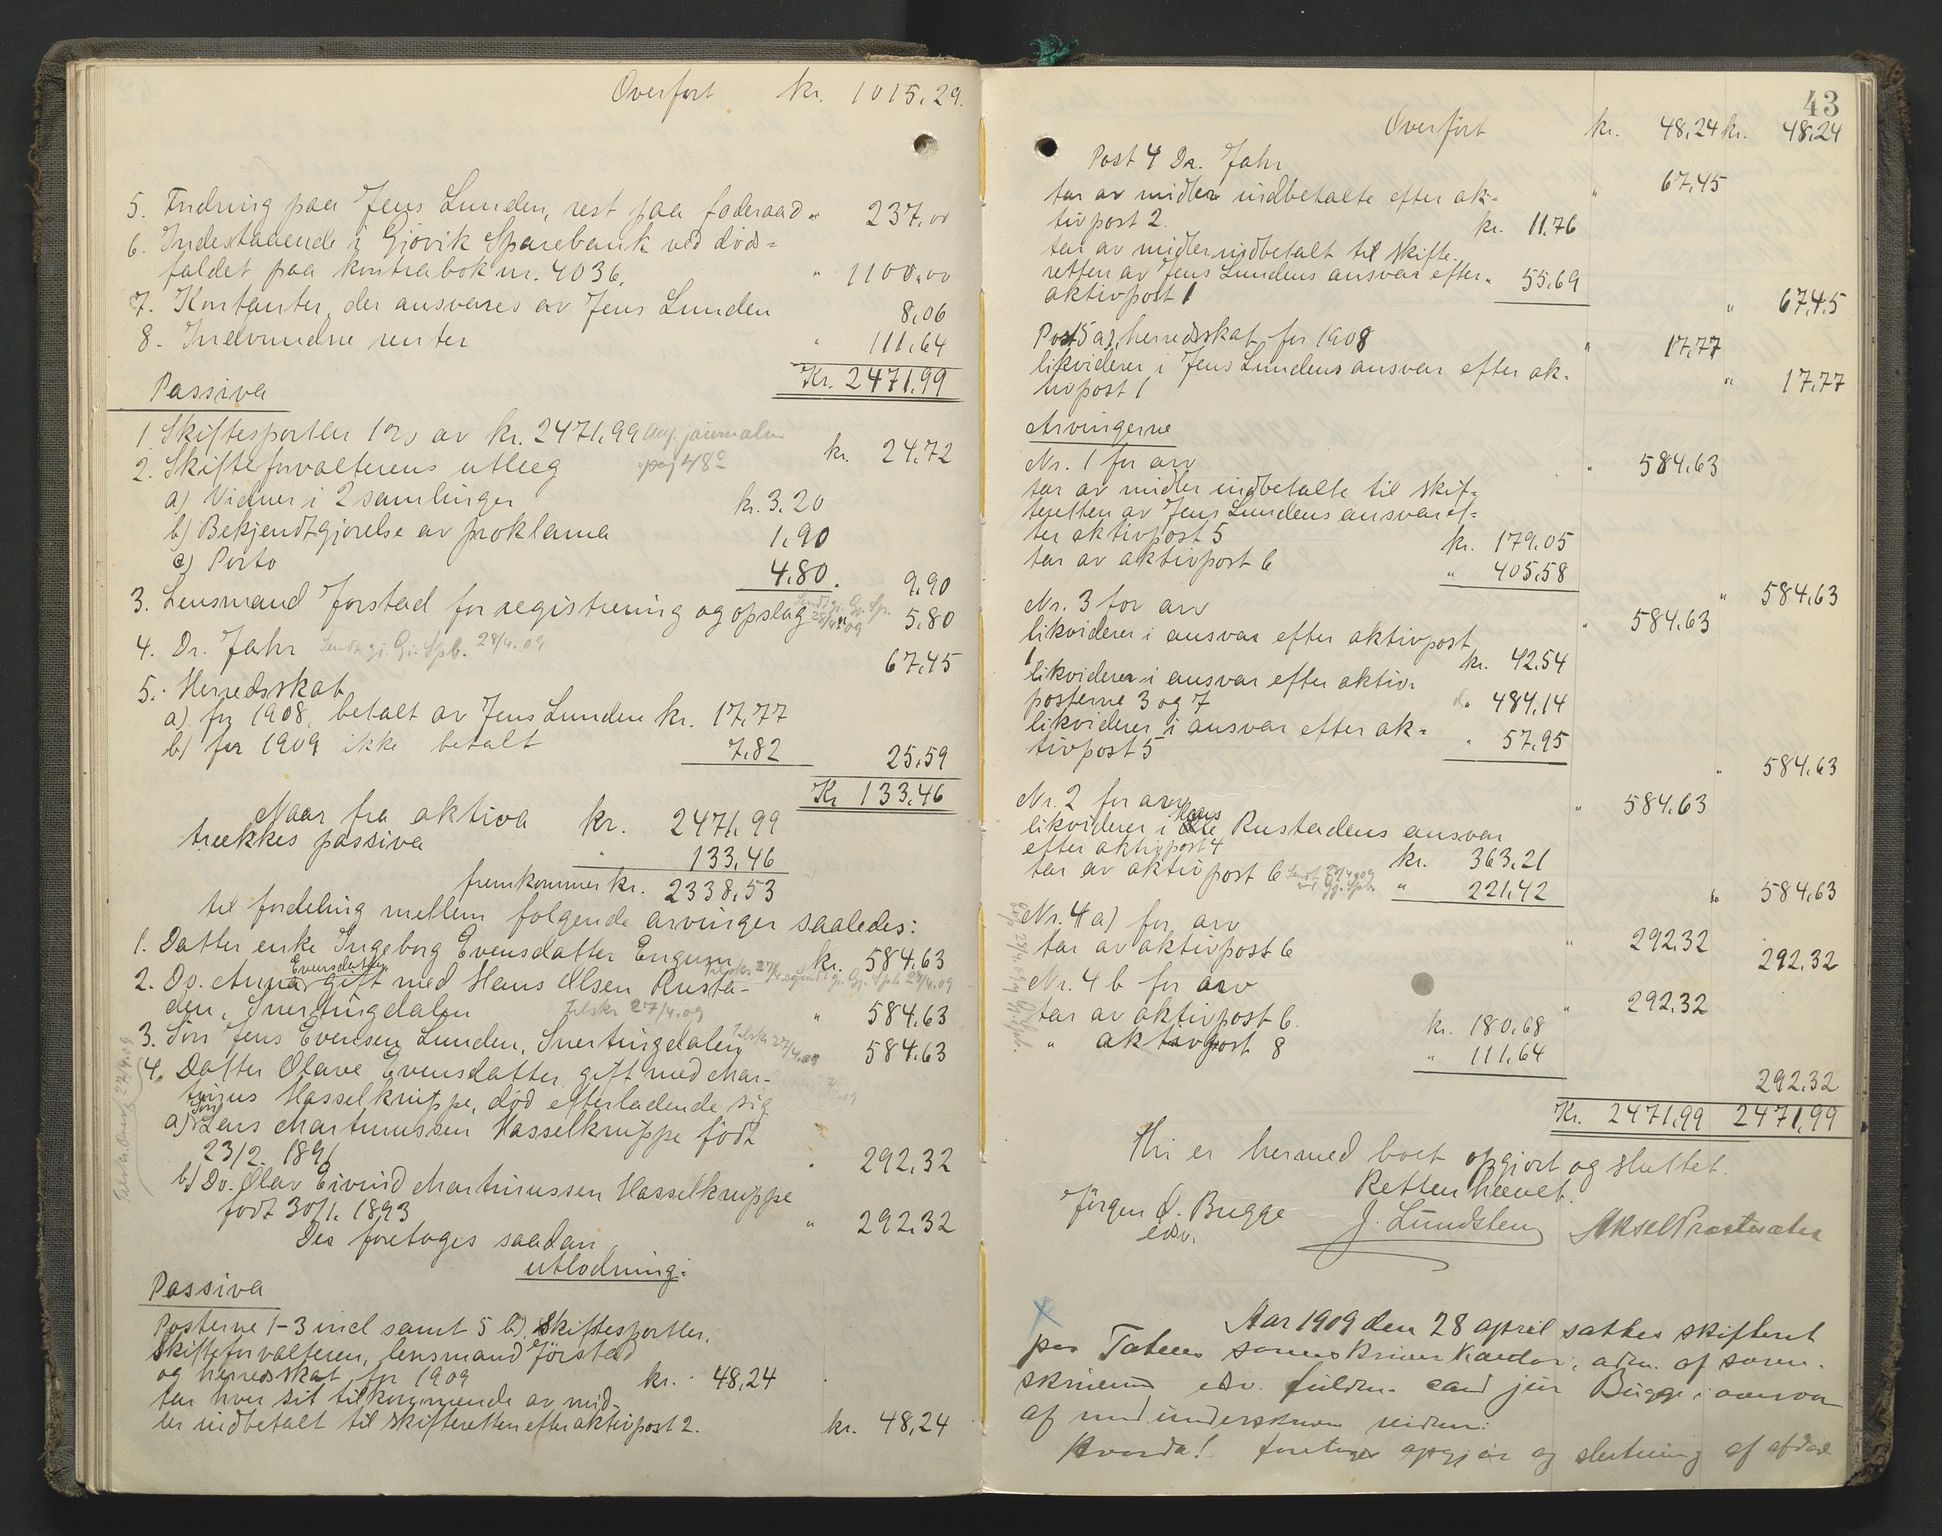 Overført kr. 1015.29.
5. Fndring paa Jens Lunden, rest paa føderaad " 237.00
6. Indestaaende i Gjøvik Sparebank ved døds=
faldet paa kontrabok nr. 4036. " 1100.00
7. Kontanter, der ansvares av Jens Lunden 8.06
8. Indvundne renter " 111.64
Kr. 2471.99
Passiva
1. Skiftesportler 1% av kr. 2471.99 kr. 24.72
2. Skifteforvalterens utlæg pag 48
a) Vidner i 2 samlinger kr. 3.20
b) Bekjendtgjørelse av proklama 1.90
c) Porto 4.80. 9.90
3. Lensmand Jørstad for registrering og opslag 5.80
4. Dr. Jahr Sendt gj. Gj. Spb. 28/4.09 67.45
5. Herredsskat
a) for 1908, betalt av Jens Lunden kr. 17.77
b) for 1909 ikke betalt 7.82 25.59
Kr 133.46
Naar fra aktiva kr. 2471.99
trækkes passiva " 133.46
fremkommer kr. 2338.53
til fordeling mellem følgende arvinger saaledes:
1. Datter enke Ingeborg Evensdatter Engum kr. 584.63
2. Do. Anna Evensdatter gift med Hans Olsen Rusta-
den, Snertingdalen Tilskr 27/4.09 " 584.63
3. Søn Jens Evensen Lunden, Snertingdalen Tilskr 27/4.09 584.63
4. Datter Olave Evensdatter, gift med Mar-
tinus Hasselknippe, død efterladende sig
a) Søn Lars Martinussen Hasselknippe født
23/2. 1891 " 292.32
b) Do. Olav Eivind Martinussen Hasselknippe
født 30/1. 1893 " 292.32
Der foretoges saadan
utlodning:
Passiva
Posterne 1-3 incl samt 5 b), skiftesportler,
skifteforvalteren, lensmand Jørstad
og herredsskat for 1909 kr. 48.24
tar hver sit tilkommende av mid-
ler indbetalt til skifteretten efter aktivpost 2. kr. 48.24
43
Overført kr. 48.24 kr. 48.24
Post 4 Dr. Jahr " 67.45
tar av midler indbetalte efter ak=
tivpost 2. kr. 11.76
tar av midler indbetalt til skifte-
retten av Jens Lundens ansvar efter " 55.69
aktivpost 1 " 67.45
Post 5 a), herredsskat for 1908 " 17.77
likviderer i Jens Lundens ansvar efter ak-
tivpost 1 " 17.77
Arvingerne
Nr. 1 for arv " 584.63
tar av midler indbetalte til skif=
teretten av Jens Lundens ansvar ef=
ter aktivpost 5 kr. 179.05
tar av aktivpost 6 " 405.58
" 584.63
Nr. 3 for arv " 584.63
likviderer i ansvar efter aktivpost
1 kr. 42.54
likviderer i ansvar efter aktiv-
posterne 3 og 7 " 484.14
likviderer i ansvar efter ak=
tivpost 5 " 57.95
" 584.63
Nr. 2 for arv " 584.63
likviderer i Hans Rustadens ansvar
efter aktivpost 4 kr. 363.21
tar av aktivpost 6 Sendt 28/4 09 " 221.42
" 584.63
Nr. 4 a) for arv " 292.32
tar av aktivpost 6 292.32
Nr. 4 b for arv " 292.32
tar av aktivpost 6. kr. 180.68
" aktivpost 8 " 111.64
292.32
Kr. 2471.99 2471.99
Hri er hermed boet opgjort og sluttet.
Retten hævet.
Jörgen Ø. Bugge J. Lundsten Aksel Prestesæter
edsv.
Aar 1909 den 28 april sattes skifteret
paa Toten sorenskriverkontor, adm. af soren-
skriveren edsv. fuldm. cand jur Bugge i overvær
af nedunderskrevne vidner:
Hvorda! foretoges opgjør og slutning af afdøde